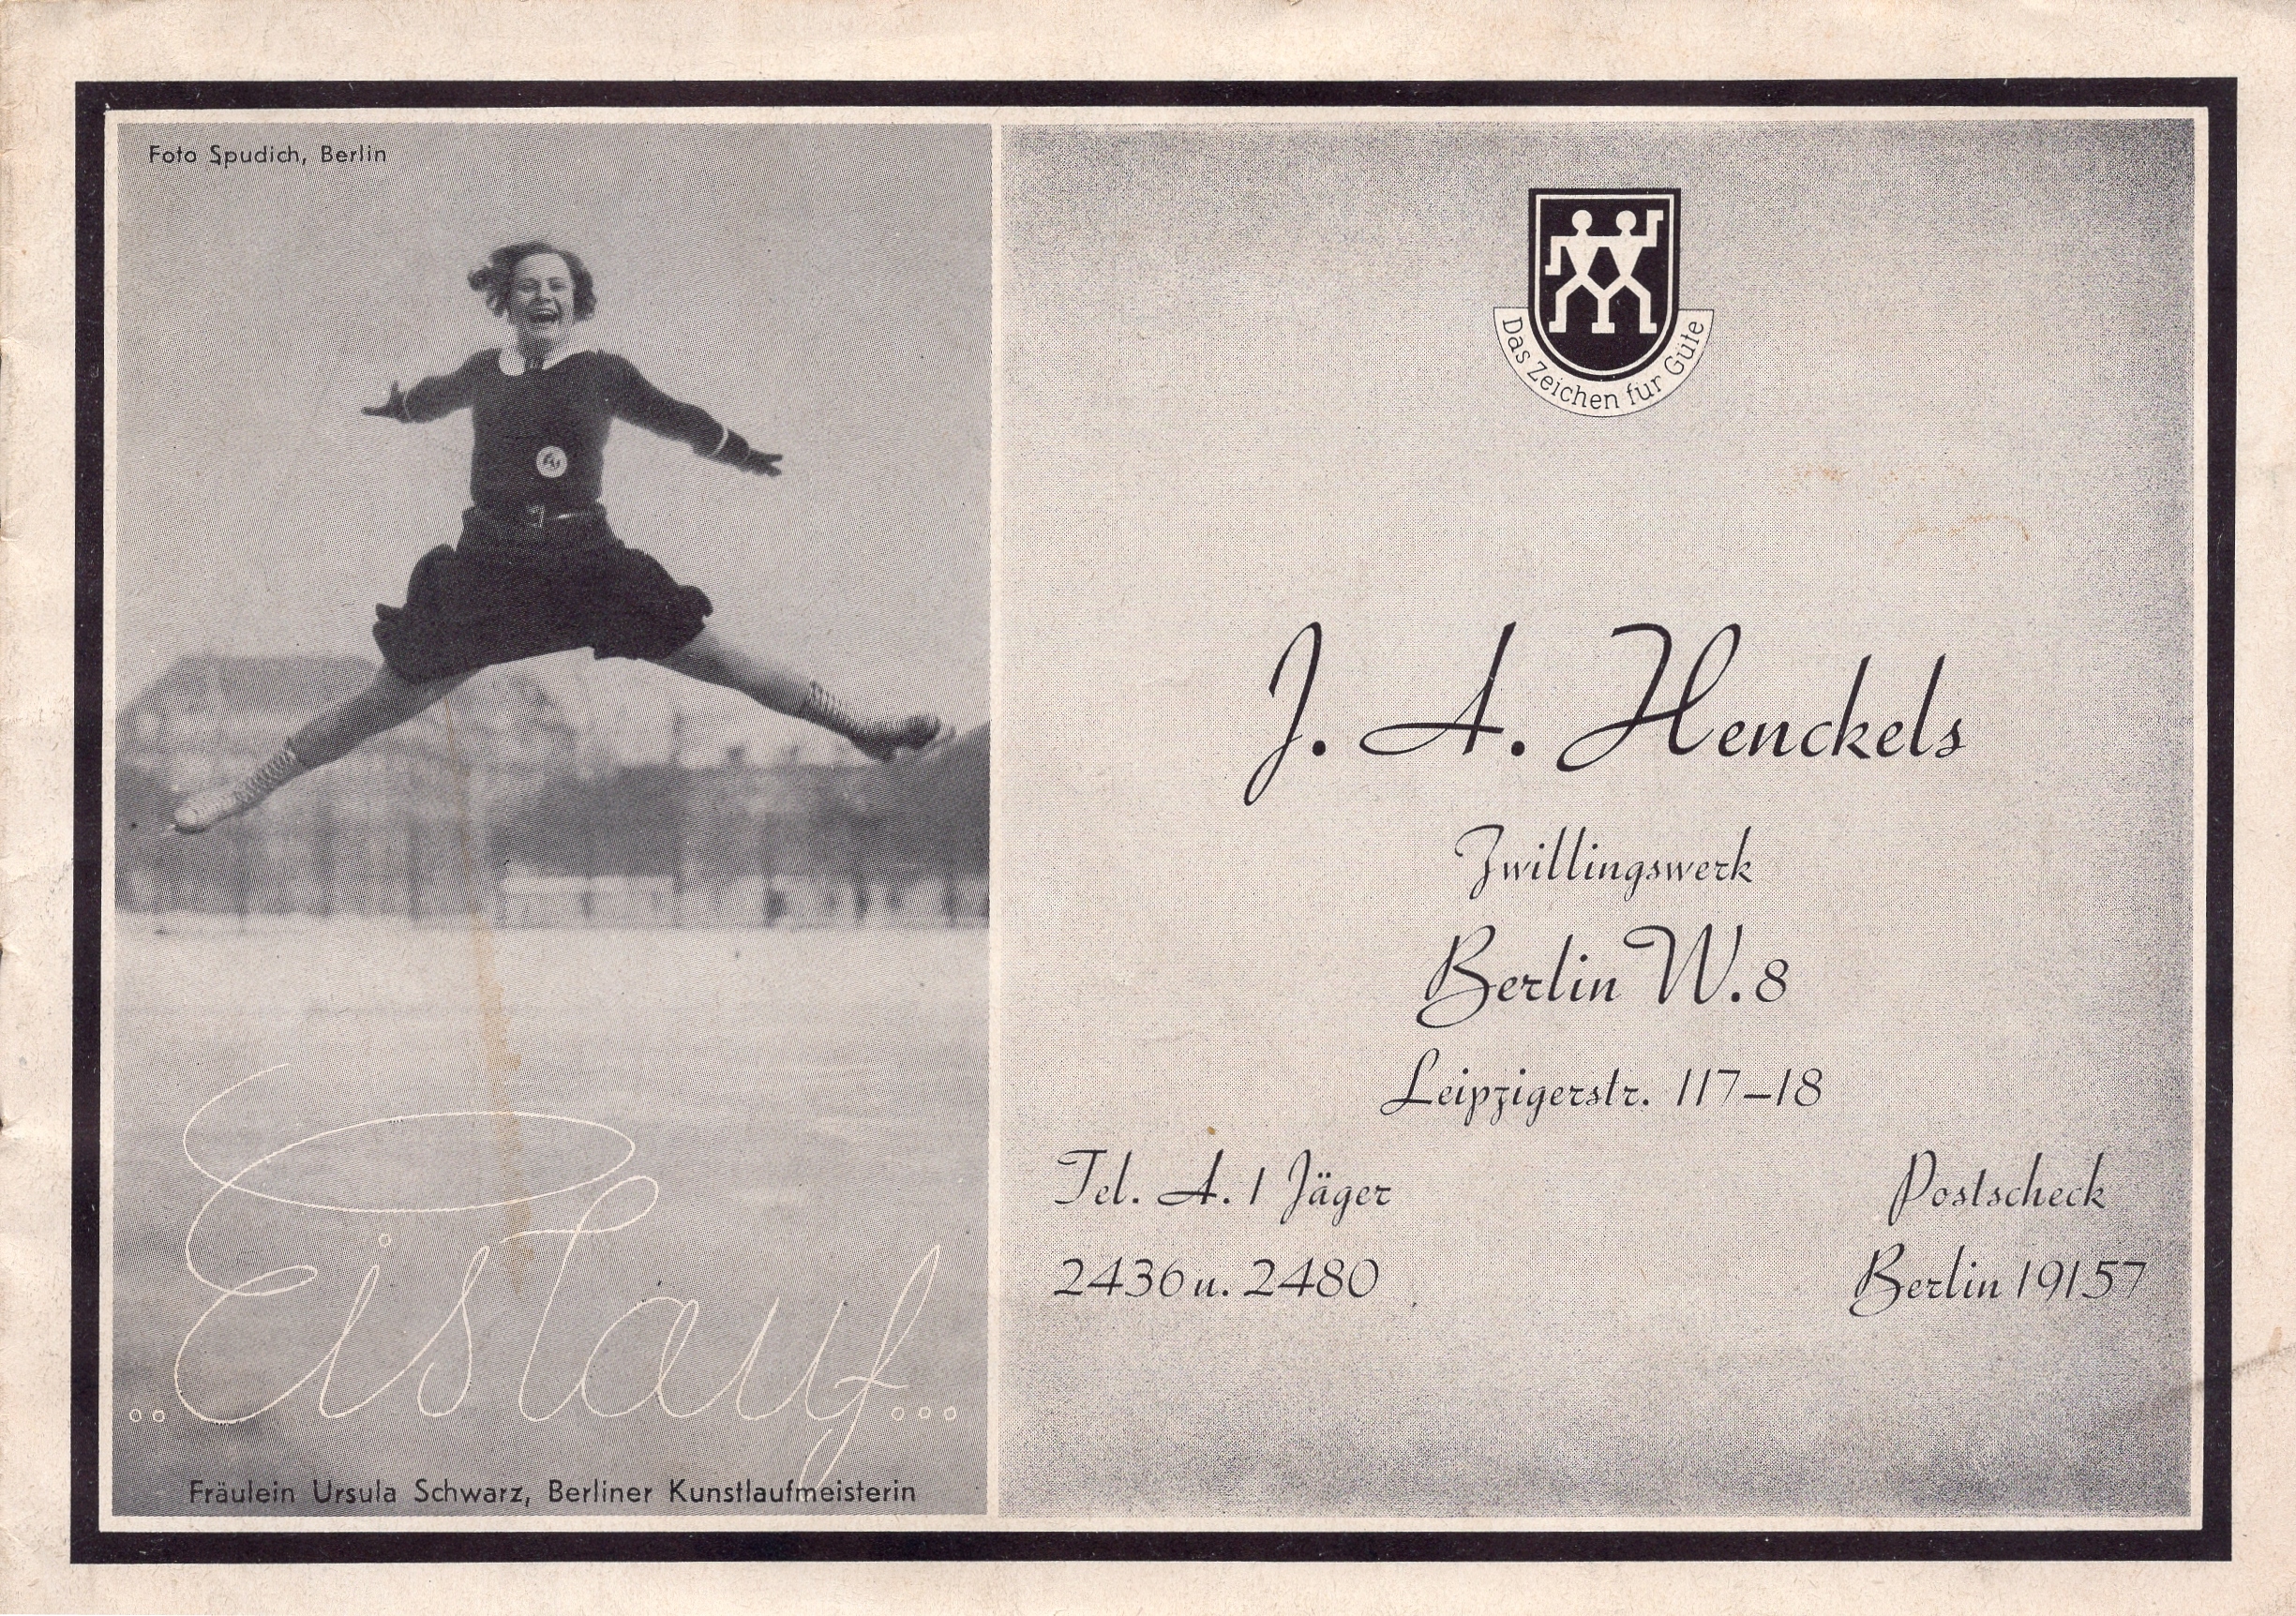 Foto Spudich, Berlin
..Eislauf...
Fräulein Ursula Schwarz, Berliner Kunstlaufmeisterin
Das Zeichen für Güte
J. A. Henckels
Zwillingswerk
Berlin W. 8
Leipzigerstr. 117–18
Tel. A. 1 Jäger
2436 u. 2480
Postscheck
Berlin 19157